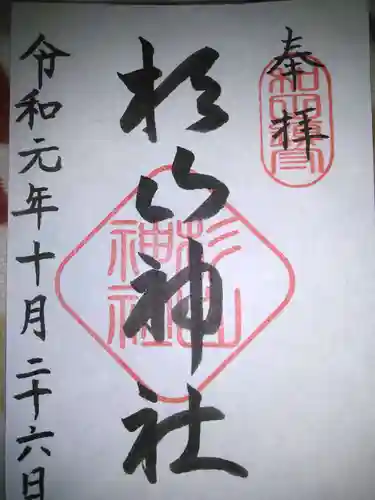 奉拝
杉山神社
杉山
神社
令和元年十月二十六日